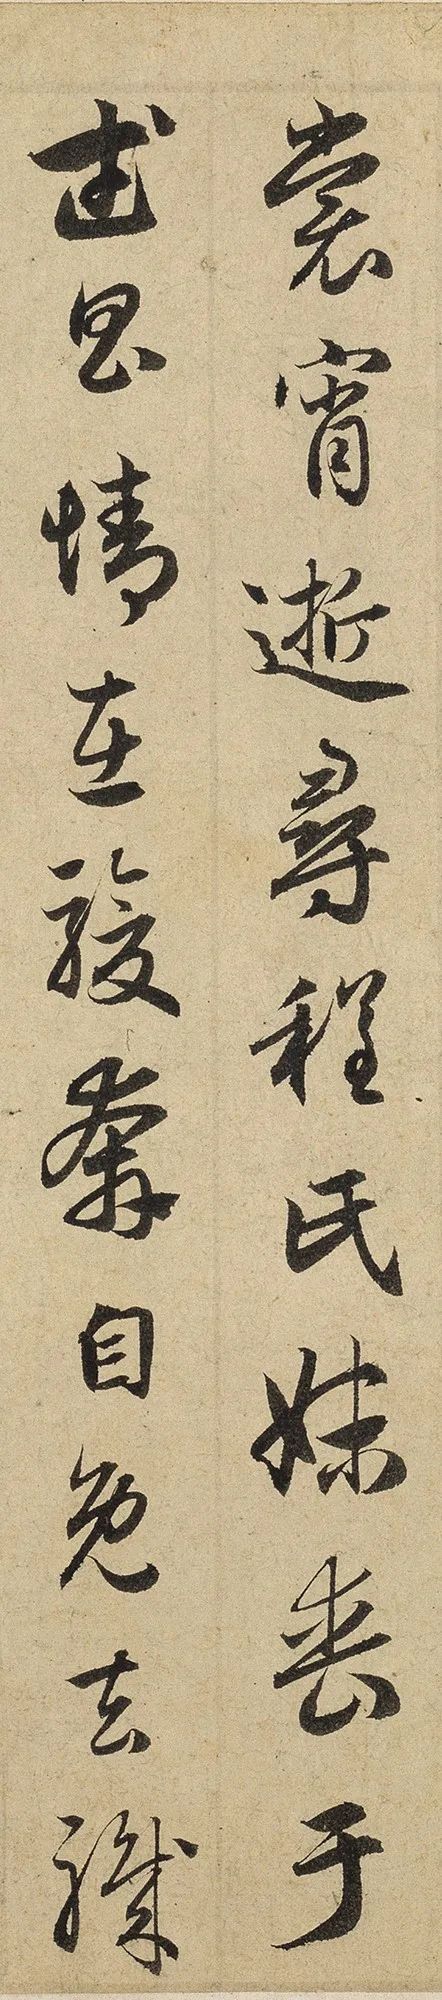 裳宵逝尋程氏妹喪于
武昌情在駿奔自免去職